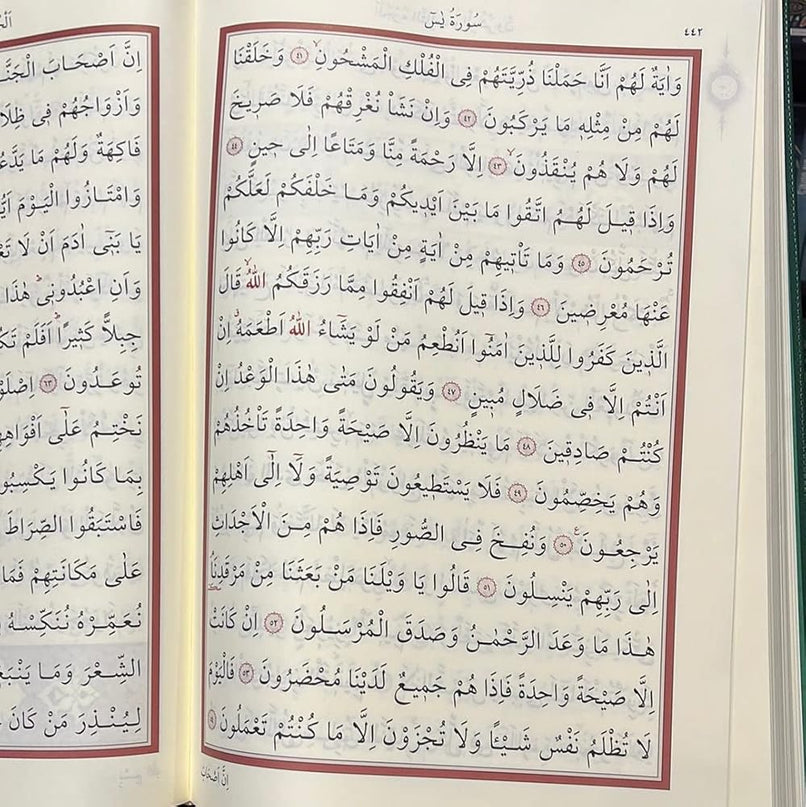 ٤٤٢
سُورَةُ يٰسٓ
وَاٰيَةٌ لَهُمْ اَنَّا حَمَلْنَا ذُرِّيَّتَهُمْ فِى الْفُلْكِ الْمَشْحُونِۙ ﴿٤١﴾ وَخَلَقْنَا
لَهُمْ مِنْ مِثْلِه۪ مَا يَرْكَبُونَ ﴿٤٢﴾ وَاِنْ نَشَأْ نُغْرِقْهُمْ فَلَا صَر۪يخَ
لَهُمْ وَلَا هُمْ يُنْقَذُونَۙ ﴿٤٣﴾ اِلَّا رَحْمَةً مِنَّا وَمَتَاعًا اِلٰى ح۪ينٍ ﴿٤٤﴾
وَاِذَا ق۪يلَ لَهُمُ اتَّقُوا مَا بَيْنَ اَيْد۪يكُمْ وَمَا خَلْفَكُمْ لَعَلَّكُمْ
تُرْحَمُونَ ﴿٤٥﴾ وَمَا تَأْت۪يهِمْ مِنْ اٰيَةٍ مِنْ اٰيَاتِ رَبِّهِمْ اِلَّا كَانُوا
عَنْهَا مُعْرِض۪ينَ ﴿٤٦﴾ وَاِذَا ق۪يلَ لَهُمْ اَنْفِقُوا مِمَّا رَزَقَكُمُ اللّٰهُۙ قَالَ
الَّذ۪ينَ كَفَرُوا لِلَّذ۪ينَ اٰمَنُٓوا اَنُطْعِمُ مَنْ لَوْ يَشَٓاءُ اللّٰهُ اَطْعَمَهُۗ اِنْ
اَنْتُمْ اِلَّا ف۪ى ضَلَالٍ مُب۪ينٍ ﴿٤٧﴾ وَيَقُولُونَ مَتٰى هٰذَا الْوَعْدُ اِنْ
كُنْتُمْ صَادِق۪ينَ ﴿٤٨﴾ مَا يَنْظُرُونَ اِلَّا صَيْحَةً وَاحِدَةً تَأْخُذُهُمْ
وَهُمْ يَخِصِّمُونَ ﴿٤٩﴾ فَلَا يَسْتَط۪يعُونَ تَوْصِيَةً وَلَٓا اِلٰٓى اَهْلِهِمْ
يَرْجِعُونَ۟ ﴿٥٠﴾ وَنُفِخَ فِى الصُّورِ فَاِذَا هُمْ مِنَ الْاَجْدَاثِ
اِلٰى رَبِّهِمْ يَنْسِلُونَ ﴿٥١﴾ قَالُوا يَا وَيْلَنَا مَنْ بَعَثَنَا مِنْ مَرْقَدِنَاۢ
هٰذَا مَا وَعَدَ الرَّحْمٰنُ وَصَدَقَ الْمُرْسَلُونَ ﴿٥٢﴾ اِنْ كَانَتْ
اِلَّا صَيْحَةً وَاحِدَةً فَاِذَا هُمْ جَم۪يعٌ لَدَيْنَا مُحْضَرُونَ ﴿٥٣﴾ فَالْيَوْمَ
لَا تُظْلَمُ نَفْسٌ شَيْـًٔا وَلَا تُجْزَوْنَ اِلَّا مَا كُنْتُمْ تَعْمَلُونَ ﴿٥٤﴾
اِنَّ اَصْحَابَ
اِنَّ اَصْحَابَ
وَاَزْوَاجُهُمْ ف۪ى
فَاكِهَةٌ وَلَهُمْ مَا
وَامْتَازُوا الْيَوْمَ
يَا بَن۪ٓى اٰدَمَ اَنْ لَا
وَاَنِ اعْبُدُون۪ىۜ هٰذَا
جِبِلًّا كَث۪يرًاۜ اَفَلَمْ
تُوعَدُونَ ﴿٦٣﴾
نَخْتِمُ عَلٰٓى
بِمَا كَانُوا يَكْسِبُونَ
فَاسْتَبَقُوا الصِّرَاطَ
عَلٰى مَكَانَتِهِمْ فَمَا
نُعَمِّرْهُ نُنَكِّسْهُ
الشِّعْرَ وَمَا
لِيُنْذِرَ مَنْ كَانَ